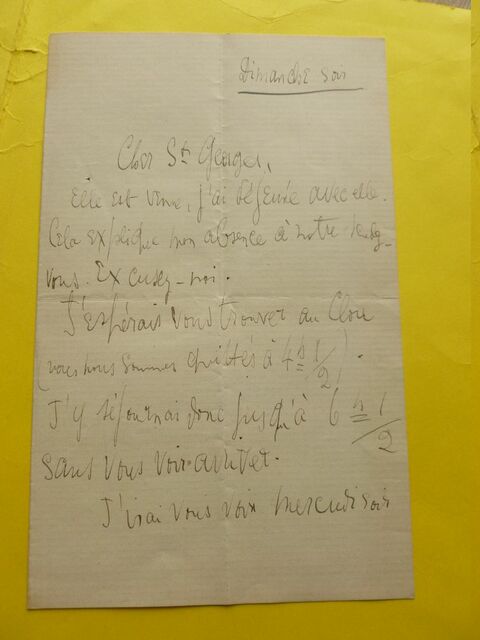 Dimanche soir
Cher St Georges,
Elle est venue, j'ai déjeuné avec elle.
Cela explique mon absence à notre rendez-
vous. Excusez-moi.
J'espérais vous trouver au Clou
(nous nous sommes quittés à 4h 1/2).
J'y séjournai donc jusqu'à 6h 1/2
sans vous voir arriver.
J'irai vous voir mercredi soir